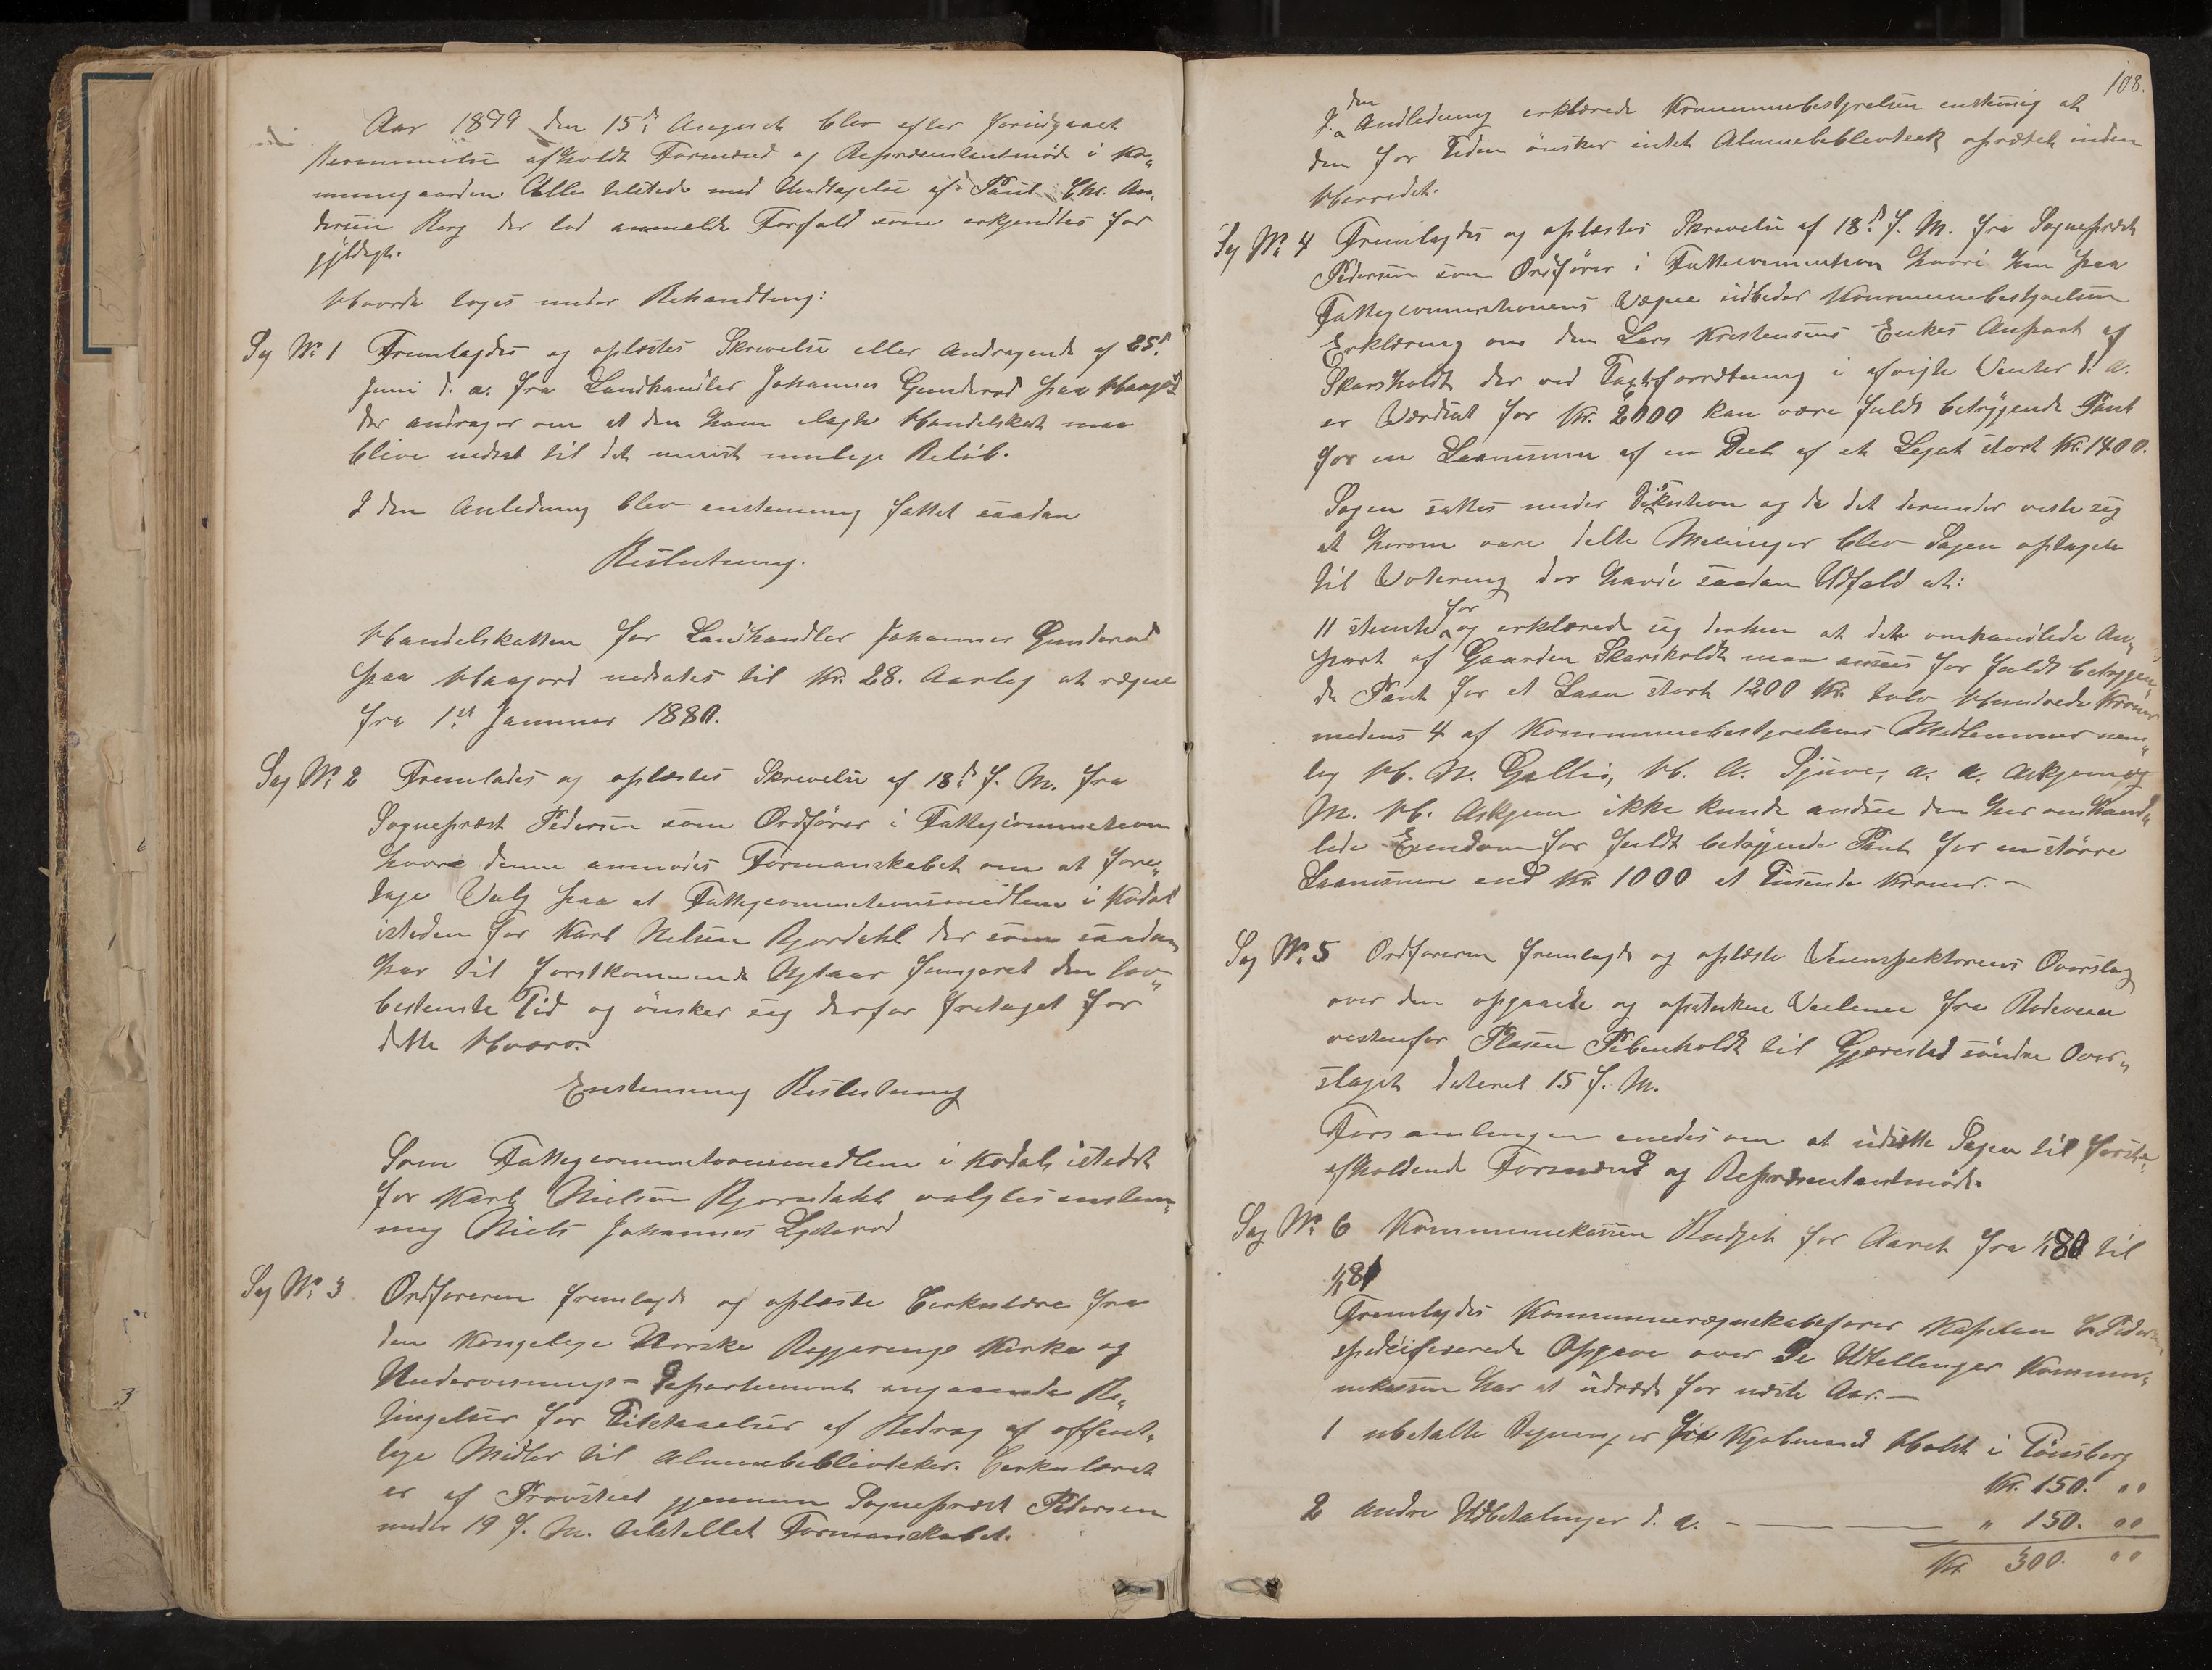 Aar 1879 den 15de August blev efter foridgaaet
Berammelse afholdt Formænd og Repræsentantmøde i Ko„
munegaarden. Alle tilstede med Undtagelse af Paul Chr. An„
dersen Berg der lod anmelde Forfald som erkjendtes for
gyldigt.
Hvorda toges under Behandling:
Sag No 1 Fremlagdes og oplæstes Skrivelse eller Andragende af 25d
Juni d. a. fra Landhandler Johannes Gunderød paa Haasjord
der andrager om at den ham ilagte Handelskat maa
blive nedsat til det minist mulige Beløb.
I den Anledning blev enstemmig fattet saadan
Beslutning.
Handelskatten for Landhandler Johannes Gunderød
paa Haasjord nedsates til Kr. 28. Aarlig at regne
fra 1st Januar 1880.
Sag No 2 Fremlades og oplæstes Skrivelse af 18d f. M. fra
Sognepræst Pedersen som Ordfører i Fattigcommisionen
hvori denne anmodes Formanskabet om at fore„
tage Valg paa et Fattigcommisionsmedlem i Kodal
isteden for Karl Nilsen Bjørndahl der som saadan
har til førstkommende Nytaar fungeret den lov„
bestemte Tid og ønsker sig derfor fretaget for
dette Hværv.
Enstemmig Beslutning
Som Fattigcommisionsmedlem i Kodal istedet
for Karl Nielsen Bjørndahl valgtes enstem„
mig Niels Johannes Lyderød
Sag No 3 Ordføreren fremlagde og oplæste Cirkulære fra
den Kongelige Norske Regjerings Kirke og
Undervisnings-Departement angaaende Be„
tingelser for Tilstaaelser af Bidrag af offent„
lige Midler til Almuebibliotheker. Cirkulæret
er af Provstiet gjennem Sognepræst Pedersen
under 19 f. M. tilstillet Formanskabet.
108.
I den Andledning erklærede Kommunebestyrelsen enstemig at
den for Tiden ønsker intet Almuebibliotheek oprættet inden
Herredet.
Sag No 4 Fremlagdes og oplæstes Skrivelse af 18d f. M. fra Sognepræst
Pedersen som Ordfører i Fatticcommisionen hvori han paa
Fattigcommisionens Vægne udbeder Kommunebestyrelsens
Erklæring om den Lars Kristensens Enkes Anpart af
Skarsholdt der ved Taxtforretning i afvigte Venter d. a.
er Værdsat for Kr. 2000 kan være fuldt betryggende Pant
for en Laanesum af en Deel af et Legat stort Kr. 1400.
Sagen sattes under Diskution og da det derunder viste sig
at herom vare delte Meninger blev Sagen optaget
til Votering der havde saadan Udfald at:
11 stemte for og erklærede sig derhen at dete omhandlede An„
part af Gaarden Skarsholdt maa ansees for fuldt betryggen„
de Pant for et Laan stort 1200 Kr. tolv Hundrede Kroner
medens 4 af Kommunebestyrelsens Medlemmer nem„
lig H. N. Gallis, H. A. Sjuve, A. A. Askjem og
M. H. Askjem ikke kunde andsee den her omhand„
lede Eiendom for fuldt betryggende Pant for en større
Laanesum end Kr 1000 et Tusende Kroner. –
Sag No 5 Ordføreren fremlagde og oplæste Veiinspektørens Overslag
over den opgaaede og opstukne Veilinie fra Rodeveien
vestenfor Pladsen Pibenholdt til Gjærestad søndre Over„
slaget dateret 15 f. M.
Forsamlingen enedes om at udsætte Sagen til første„
afholdende Formænd og Repræsentantmøde.
Sag No 6 Kommunekassen Budget for Aaret fra 1/1 80 til
1/1 81
Fremlagdes Kommuneregnskabsfører Kaptein C Pedersen
spedcifiserede Opgave over De Udtellinger Kommu„
nekassen har at udrede for næste Aar. –
1 ubetalte Regninger fra Kjøbmand Holst i Tønsberg
Kr. 150. „
2 andre Udbetalinger d. a. – „ 150. „
Kr 300. „